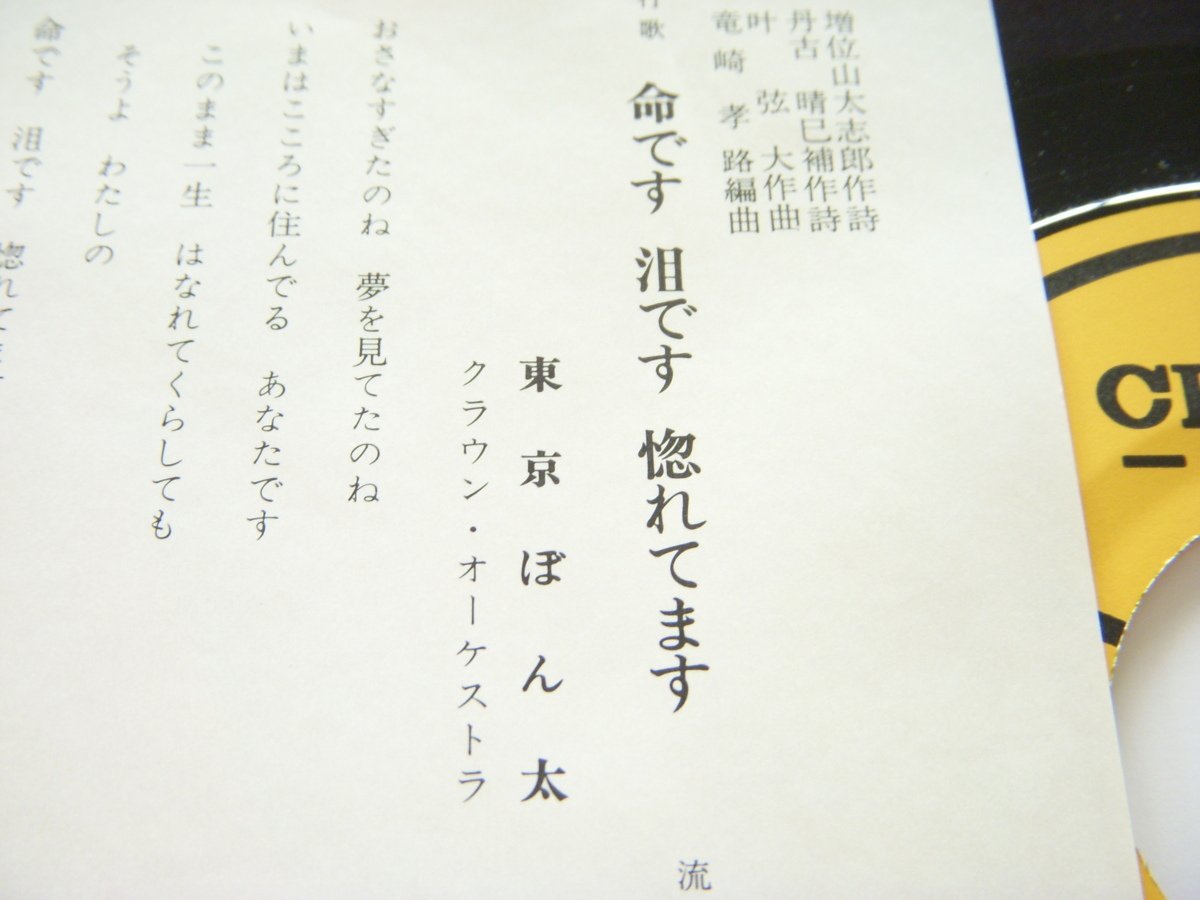 増位山太志郎作詩
丹古晴巳補作詩
叶弦大作曲
竜崎孝路編曲
行歌 命です 泪です 惚れてます
東京ぼん太
クラウン・オーケストラ
おさなすぎたのね 夢を見てたのね
いまはこころに住んでる あなたです
このまま一生 はなれてくらしても
そうよ わたしの
命です 泪です 惚れてます
流